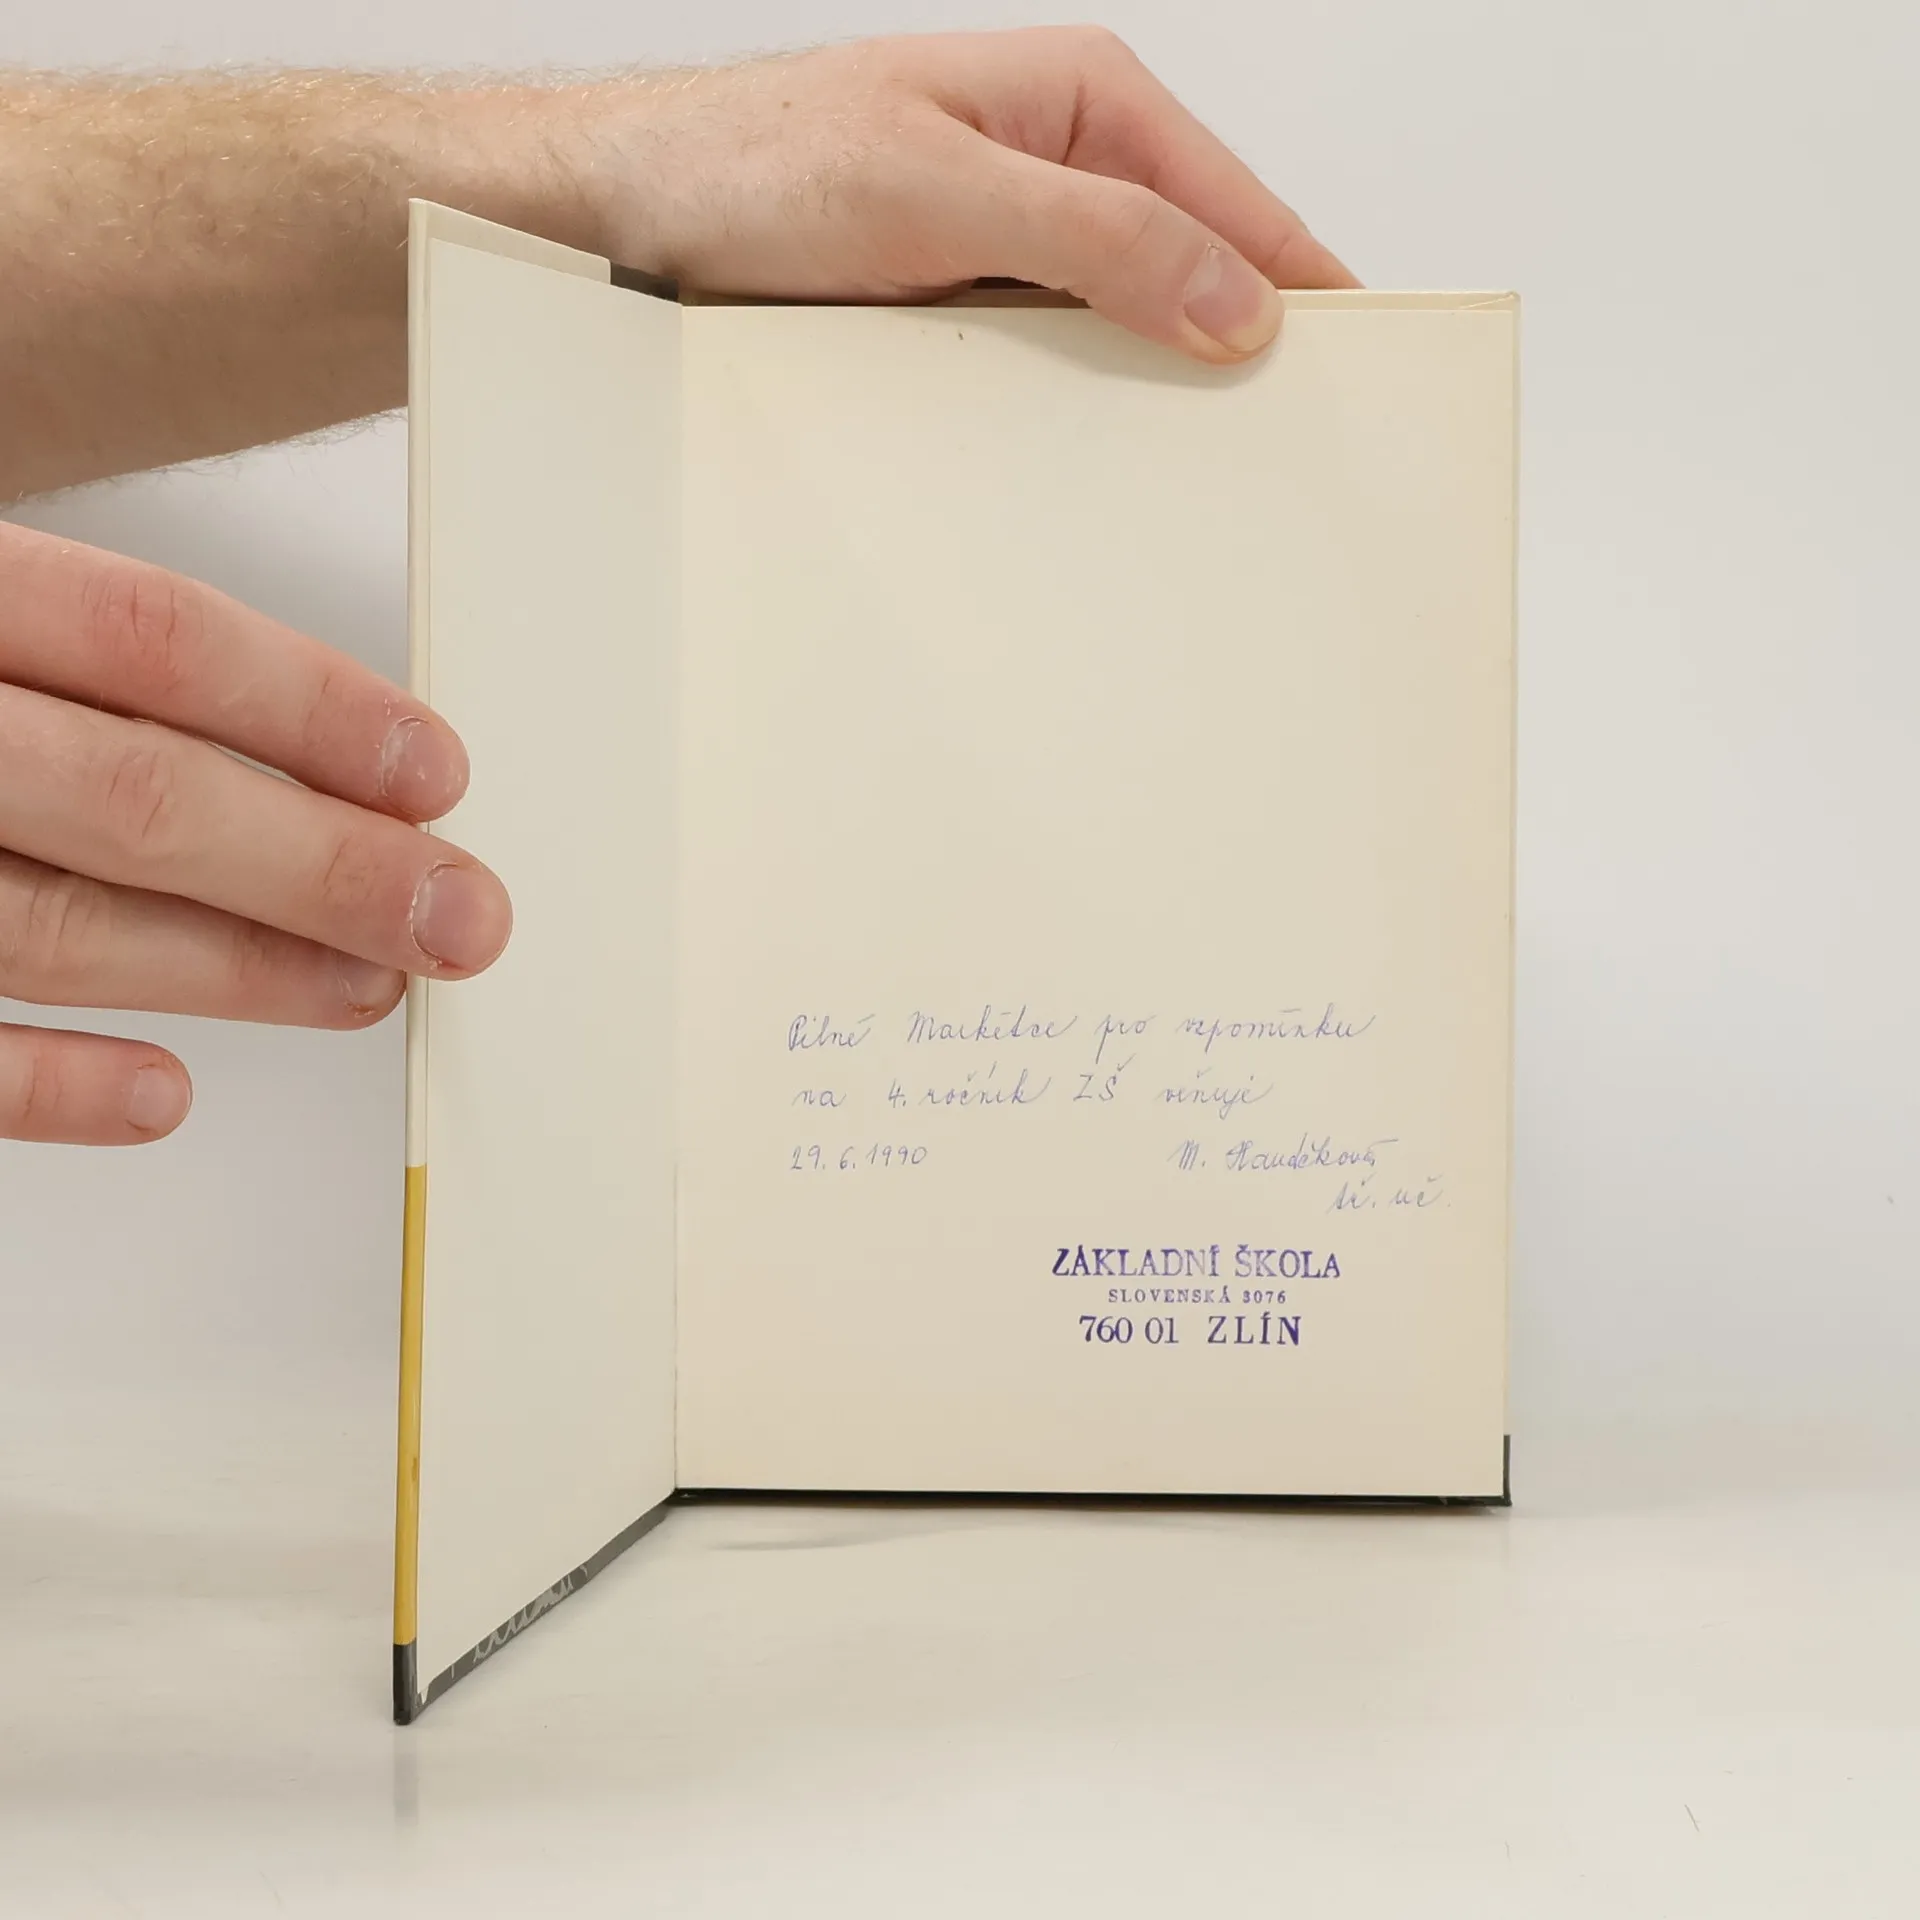 Pilné Markétce pro vzpomínku
na 4. ročník ZŠ věnuje
29. 6. 1990 M.
tř. uč.
ZÁKLADNÍ ŠKOLA
SLOVENSKÁ 3076
760 01 ZLÍN